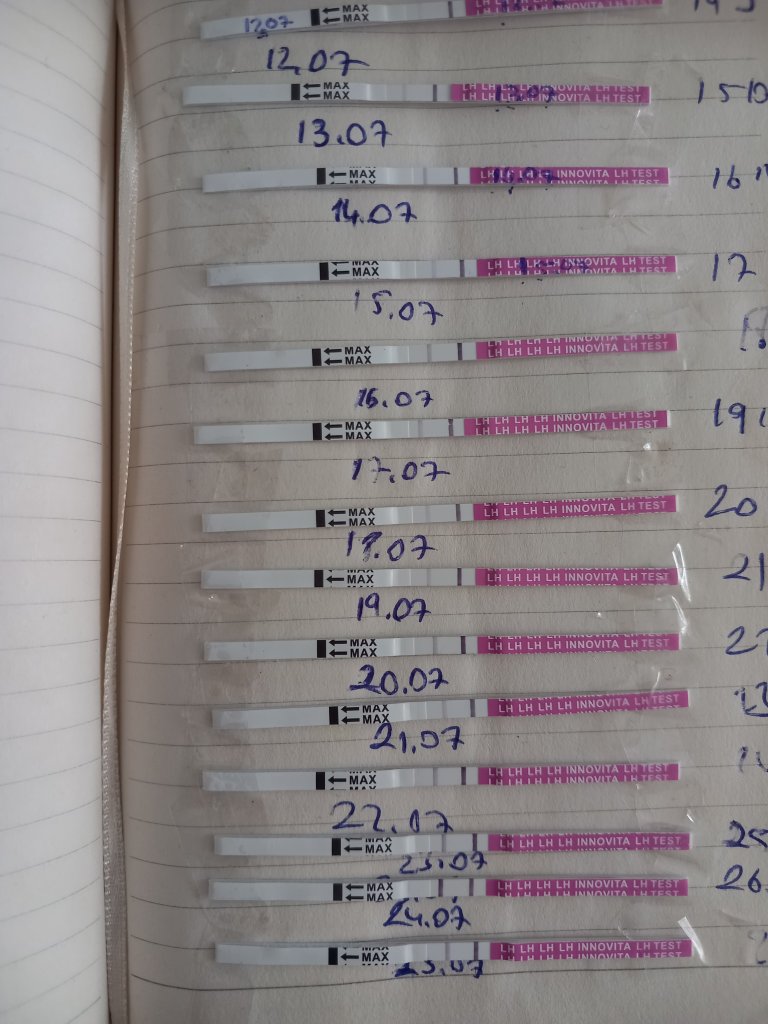 12.07 MAX MAX
12.07
MAX MAX 13.07 LH LH LH LH INNOVITA LH TEST
13.07
MAX LH LH LH LH INNOVITA LH TEST 16
14.07
MAX MAX LH LH LH LH INNOVITA LH TEST 17
15.07
MAX MAX LH LH LH LH INNOVITA LH TEST
16.07
MAX MAX LH LH LH LH INNOVITA LH TEST 19
17.07
MAX MAX LH LH LH LH INNOVITA LH TEST 20
18.07
MAX LH LH LH LH INNOVITA LH TEST 21
19.07
MAX MAX LH LH LH LH INNOVITA LH TEST
20.07
MAX MAX LH LH LH LH INNOVITA LH TEST
21.07
MAX LH LH LH LH INNOVITA LH TEST
22.07
MAX MAX LH LH LH LH INNOVITA LH TEST 25
23.07
MAX LH LH LH LH INNOVITA LH TEST 26
24.07
MAX MAX LH LH LH LH INNOVITA LH TEST
25.07